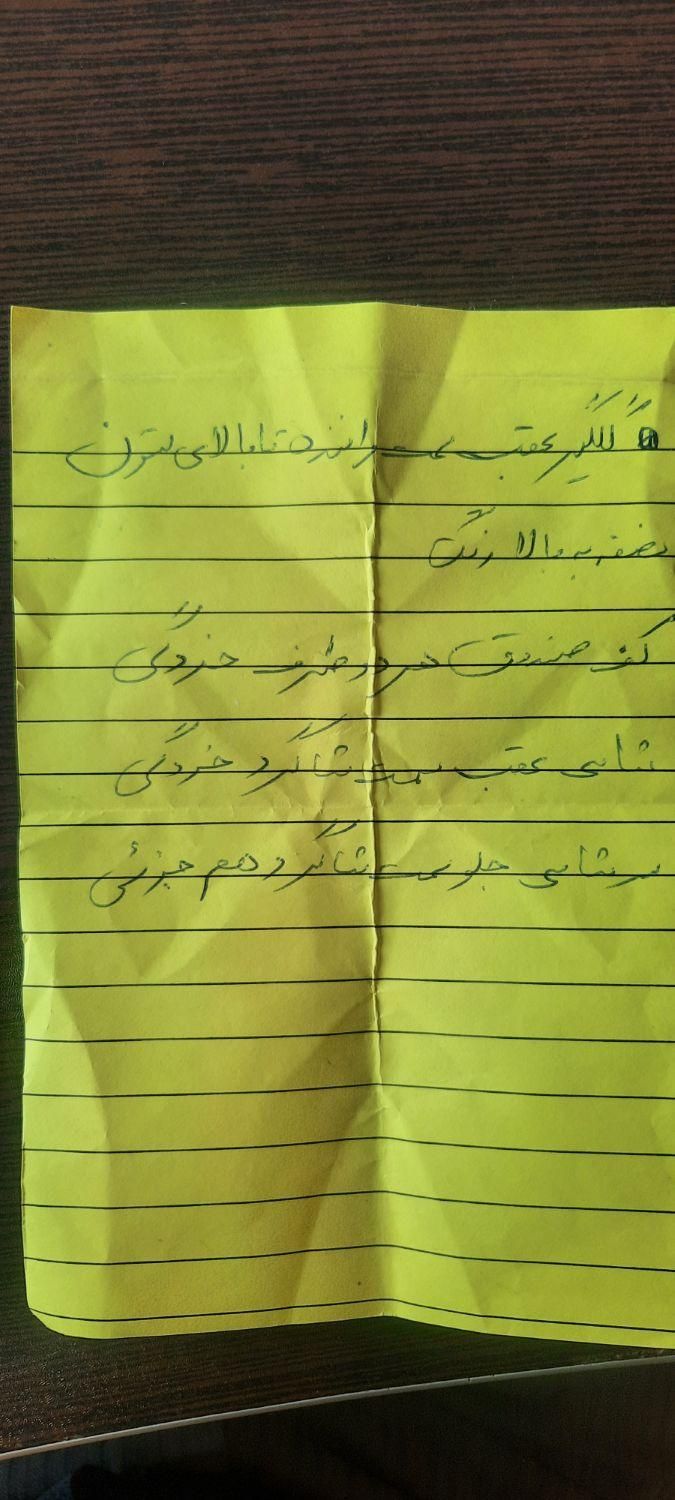 گلگیر عقب سمت راننده تا بالای ستون
نصفه به بالا رنگ
کف صندوق هر دو طرف خوردگی
شاسی عقب سمت شاگرد خوردگی
سر شاسی جلو سمت شاگرد هم جزئی